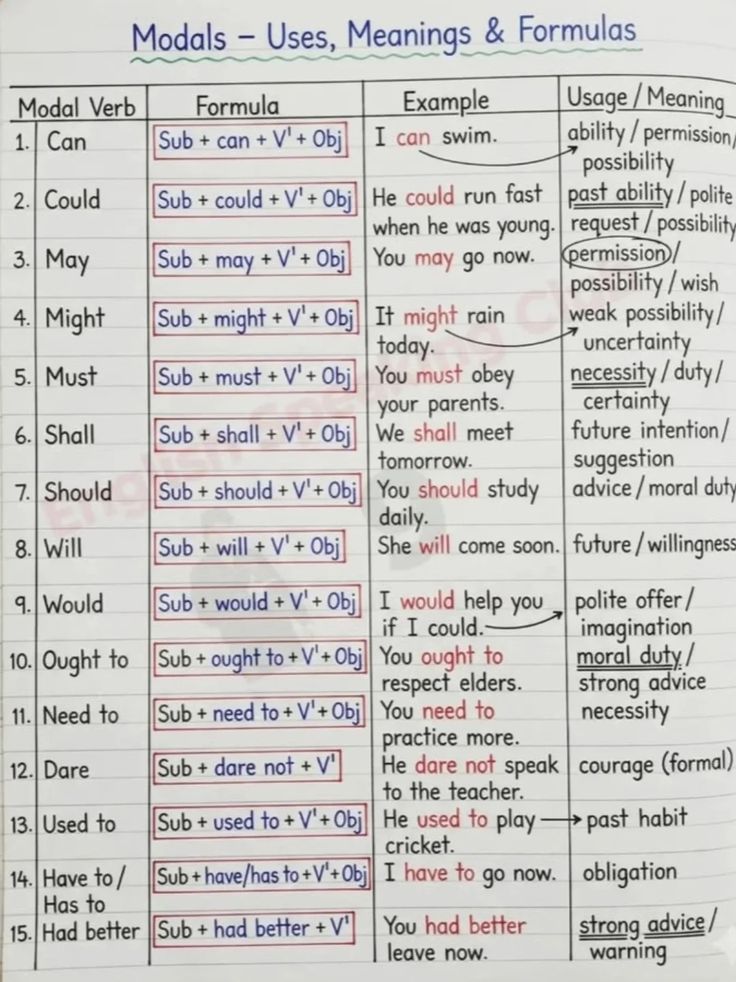 Modals – Uses, Meanings & Formulas
Modal Verb Formula Example Usage / Meaning
1. Can Sub + can + V¹ + Obj I can swim. ability / permission/
possibility
2. Could Sub + could + V¹ + Obj He could run fast past ability / polite
when he was young. request / possibility
3. May Sub + may + V¹ + Obj You may go now. permission /
possibility / wish
4. Might Sub + might + V¹ + Obj It might rain weak possibility /
today. uncertainty
5. Must Sub + must + V¹ + Obj You must obey necessity / duty /
your parents. certainty
6. Shall Sub + shall + V¹ + Obj We shall meet future intention /
tomorrow. suggestion
7. Should Sub + should + V¹ + Obj You should study advice / moral duty
daily.
8. Will Sub + will + V¹ + Obj She will come soon. future / willingness
9. Would Sub + would + V¹ + Obj I would help you polite offer /
if I could. imagination
10. Ought to Sub + ought to + V¹ + Obj You ought to moral duty /
respect elders. strong advice
11. Need to Sub + need to + V¹ + Obj You need to necessity
practice more.
12. Dare Sub + dare not + V¹ He dare not speak courage (formal)
to the teacher.
13. Used to Sub + used to + V¹ + Obj He used to play past habit
cricket.
14. Have to / Sub + have/has to + V¹ + Obj I have to go now. obligation
Has to
15. Had better Sub + had better + V¹ You had better strong advice /
leave now. warning
English Speaking